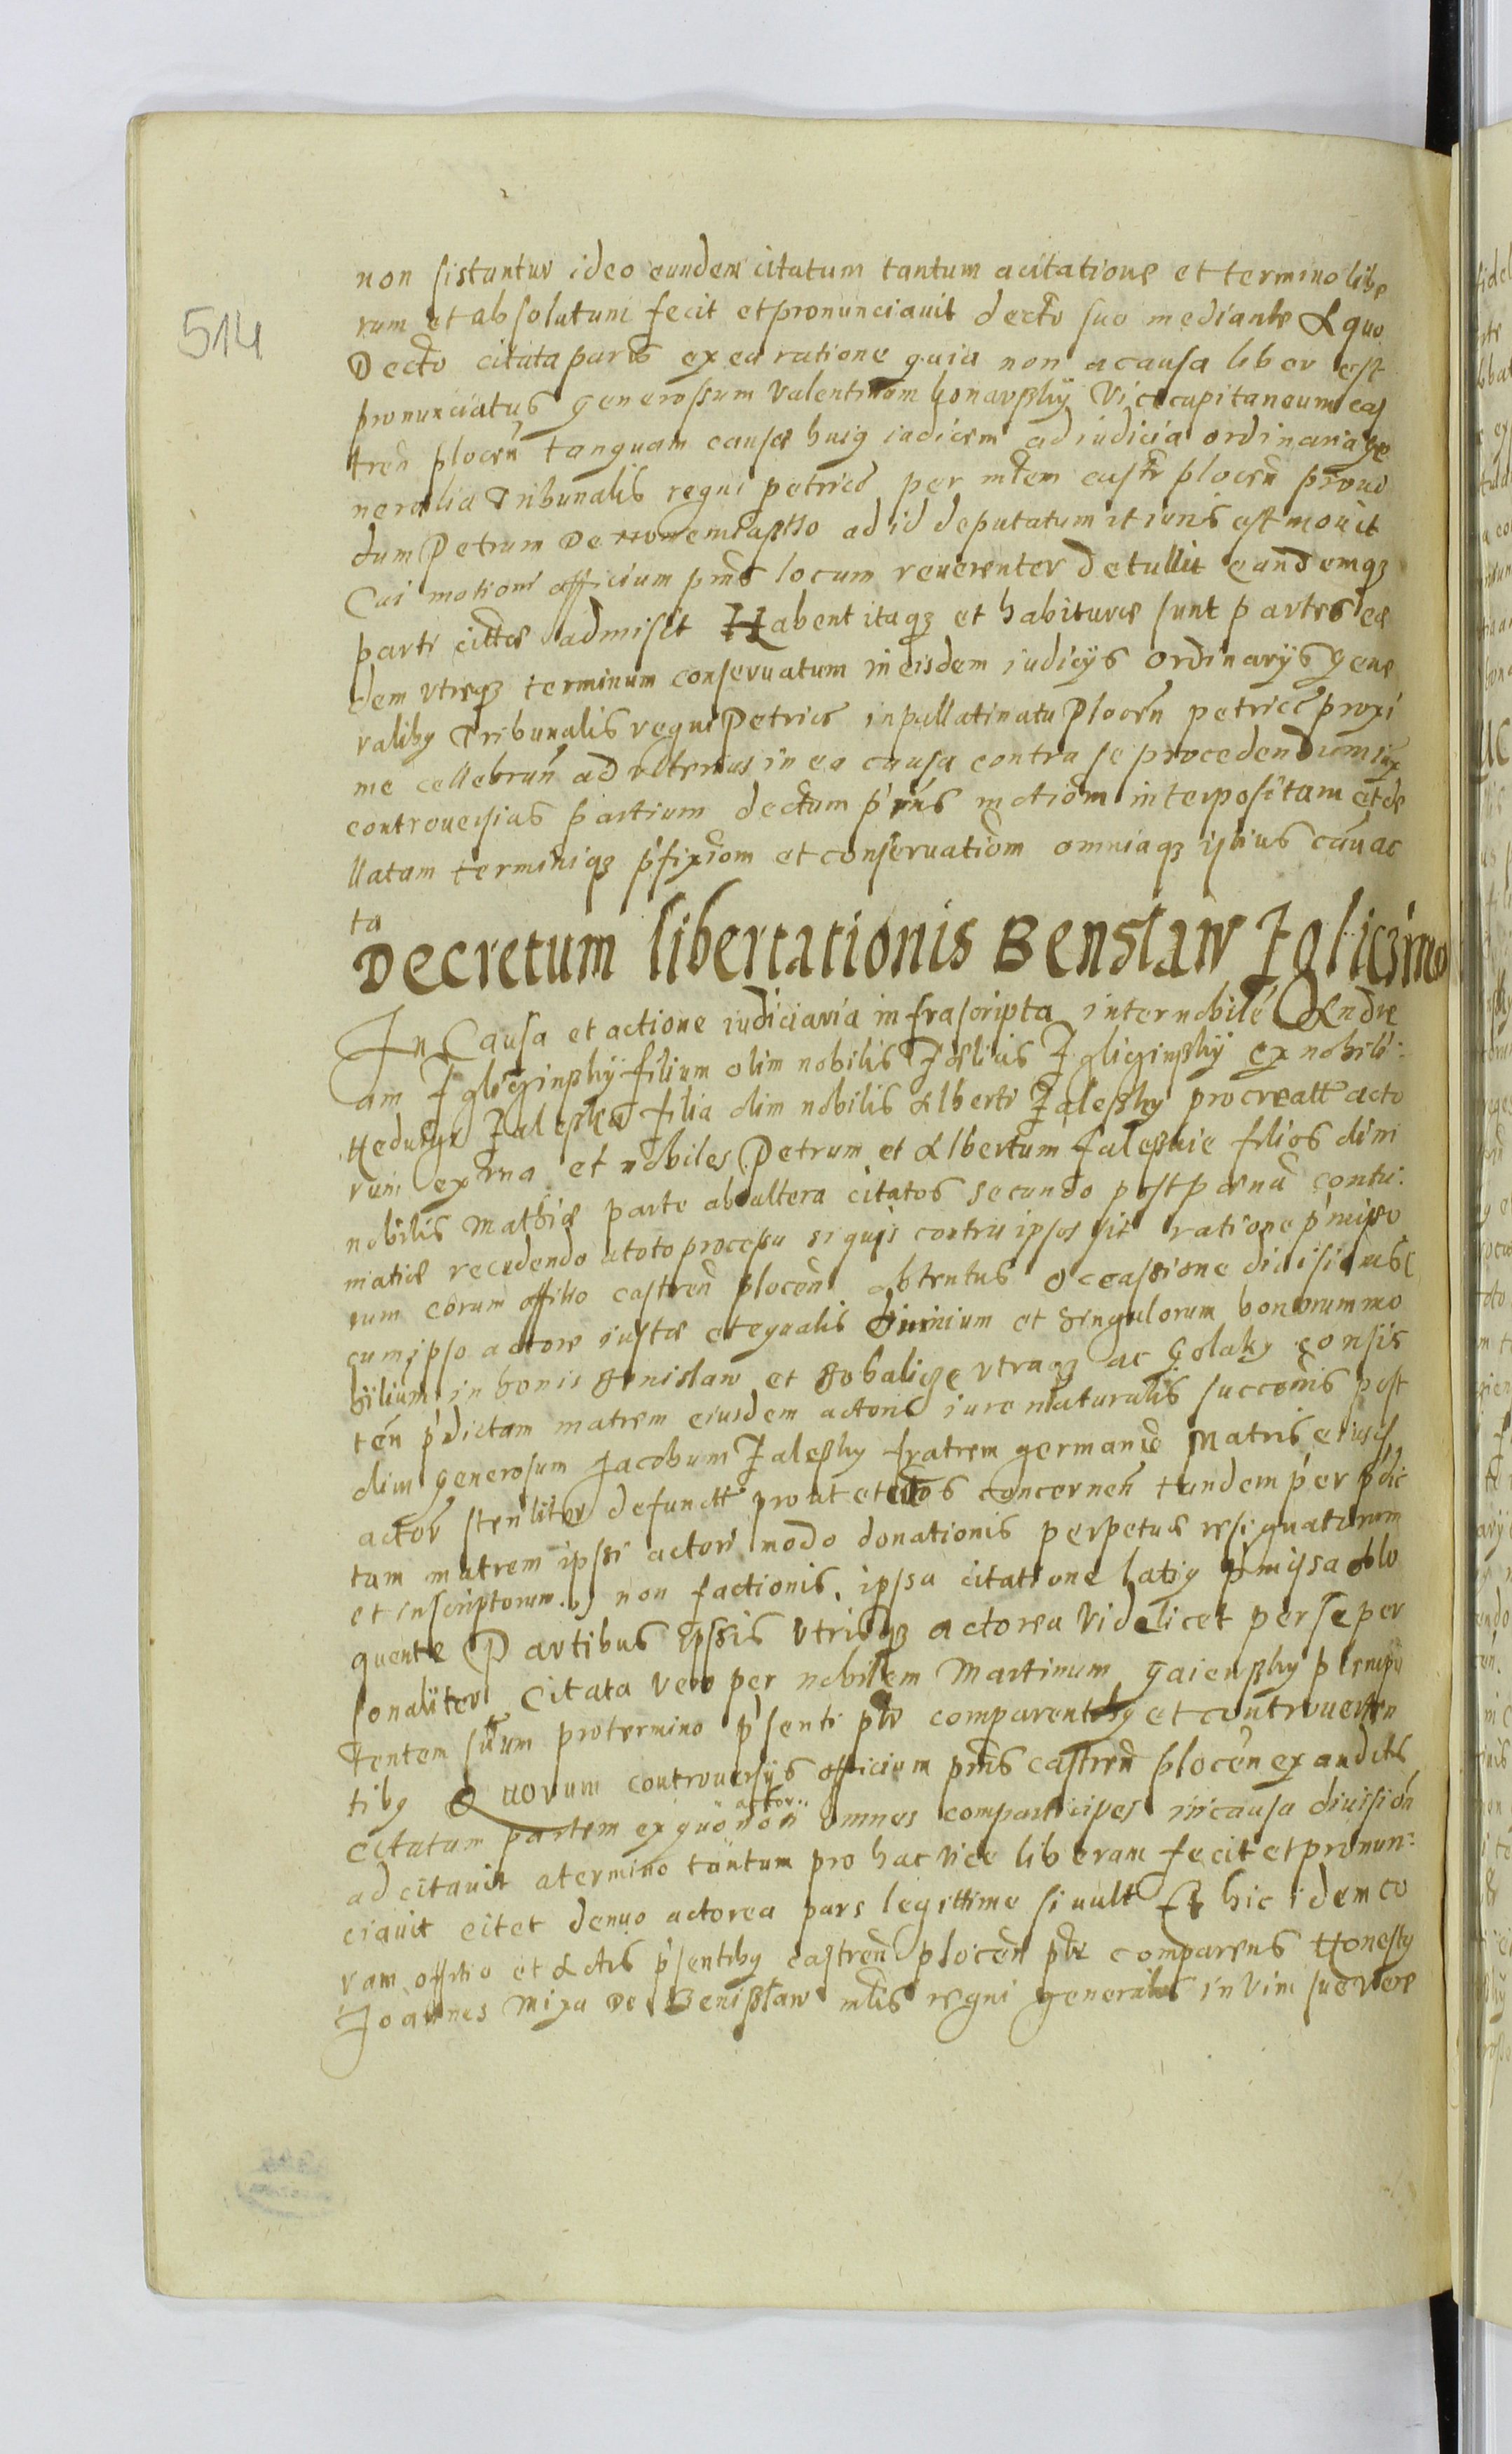 514
non sistantur ideo eundem citatum tantum a citatione et termino libe
rum et absolutum fecit et pronunciavit decto suo mediante A quo
Decto citata pars ex ea ratione quia non a causa liber est
pronunciatus generossum Valentinum Vicecapitaneum cas
tren plocen tanquam causæ huiq iudicem ad iudicia ordinaria ge
neralia Tribunalis regni petrico per mtem castr plocen provid
dum Petrum De ad id deputatum it iuris est movit
Cui motioni officium pns locum reverenter detullit eandemqz
parti cittæ admisit Habent itaqz et habituræ sunt partes eæ
dem utreqz terminum conservatum in eisdem iudicijs ordinarijs gene
raliby Tribunalis regni Petrico in pallatinatu Plocen petrico proxi
me cellebran ad ulterius in ea causa contra se procedendum iux
controversias partium dectum pns motiom interpositam et de
llatam terminiqz pfixiom et conservatiom omniaqz ipsius cau ac
ta
Decretum libertationis Benslaw
In Causa et actione iudiciaria infrascripta inter nobile Andre
am filium olim nobilis ex nobili
Hedvige Zaleska filia olim nobilis Alberti Zalesky procreatt acto
rum ex una et nobiles Petrum et Albertum Zaleskie filios olim
nobilis Mathiæ parte ab altera citatos secundo post pænã contu:
matiæ recedendo a toto processu si quis contra ipsos sit ratione pmisso
rum coram offitio castren plocen obtentus occassione divisionis
cum ipso actore iustæ et equalis omnium et singulorum bonorum mo
bilium in bonis Benislaw et utraqz ac Golaky consis
ten pdictam matrem eiusdem actoris iure naturalis succonis post
olim generosum Jacobum Zalesky fratrem germanũ Matris eiusd
actor steriliter defunctt prout et concernen tandem per pdic
tam matrem ipssi actori modo donationis perpetuæ resignatorum
et inscriptorum non factionis. ipssa citatione latiq pmissa oblo
quente Partibus ipssis utrisqz actorea videlicet per se per
sonaliter Citata vero per nobilem Martinum Gaiensky plenipo
tentem suum pro termino psenti ptr comparentiby et controverten
tiby Quorum controversijs officium pns castren plocen exauditis
actor..
citatam partem ex quo non omnes comparticipes in causa division
adcitavit a termino tantum pro hac vice liberam fecit et pronun=
ciavit citet denuo actorea pars legittime si vult Et hic idem co
ram offitio et Actis psentiby castren plocen ptr comparens Honesty
Joannes Mixa De Benisław mtis regni generalis in vim suæ veræ